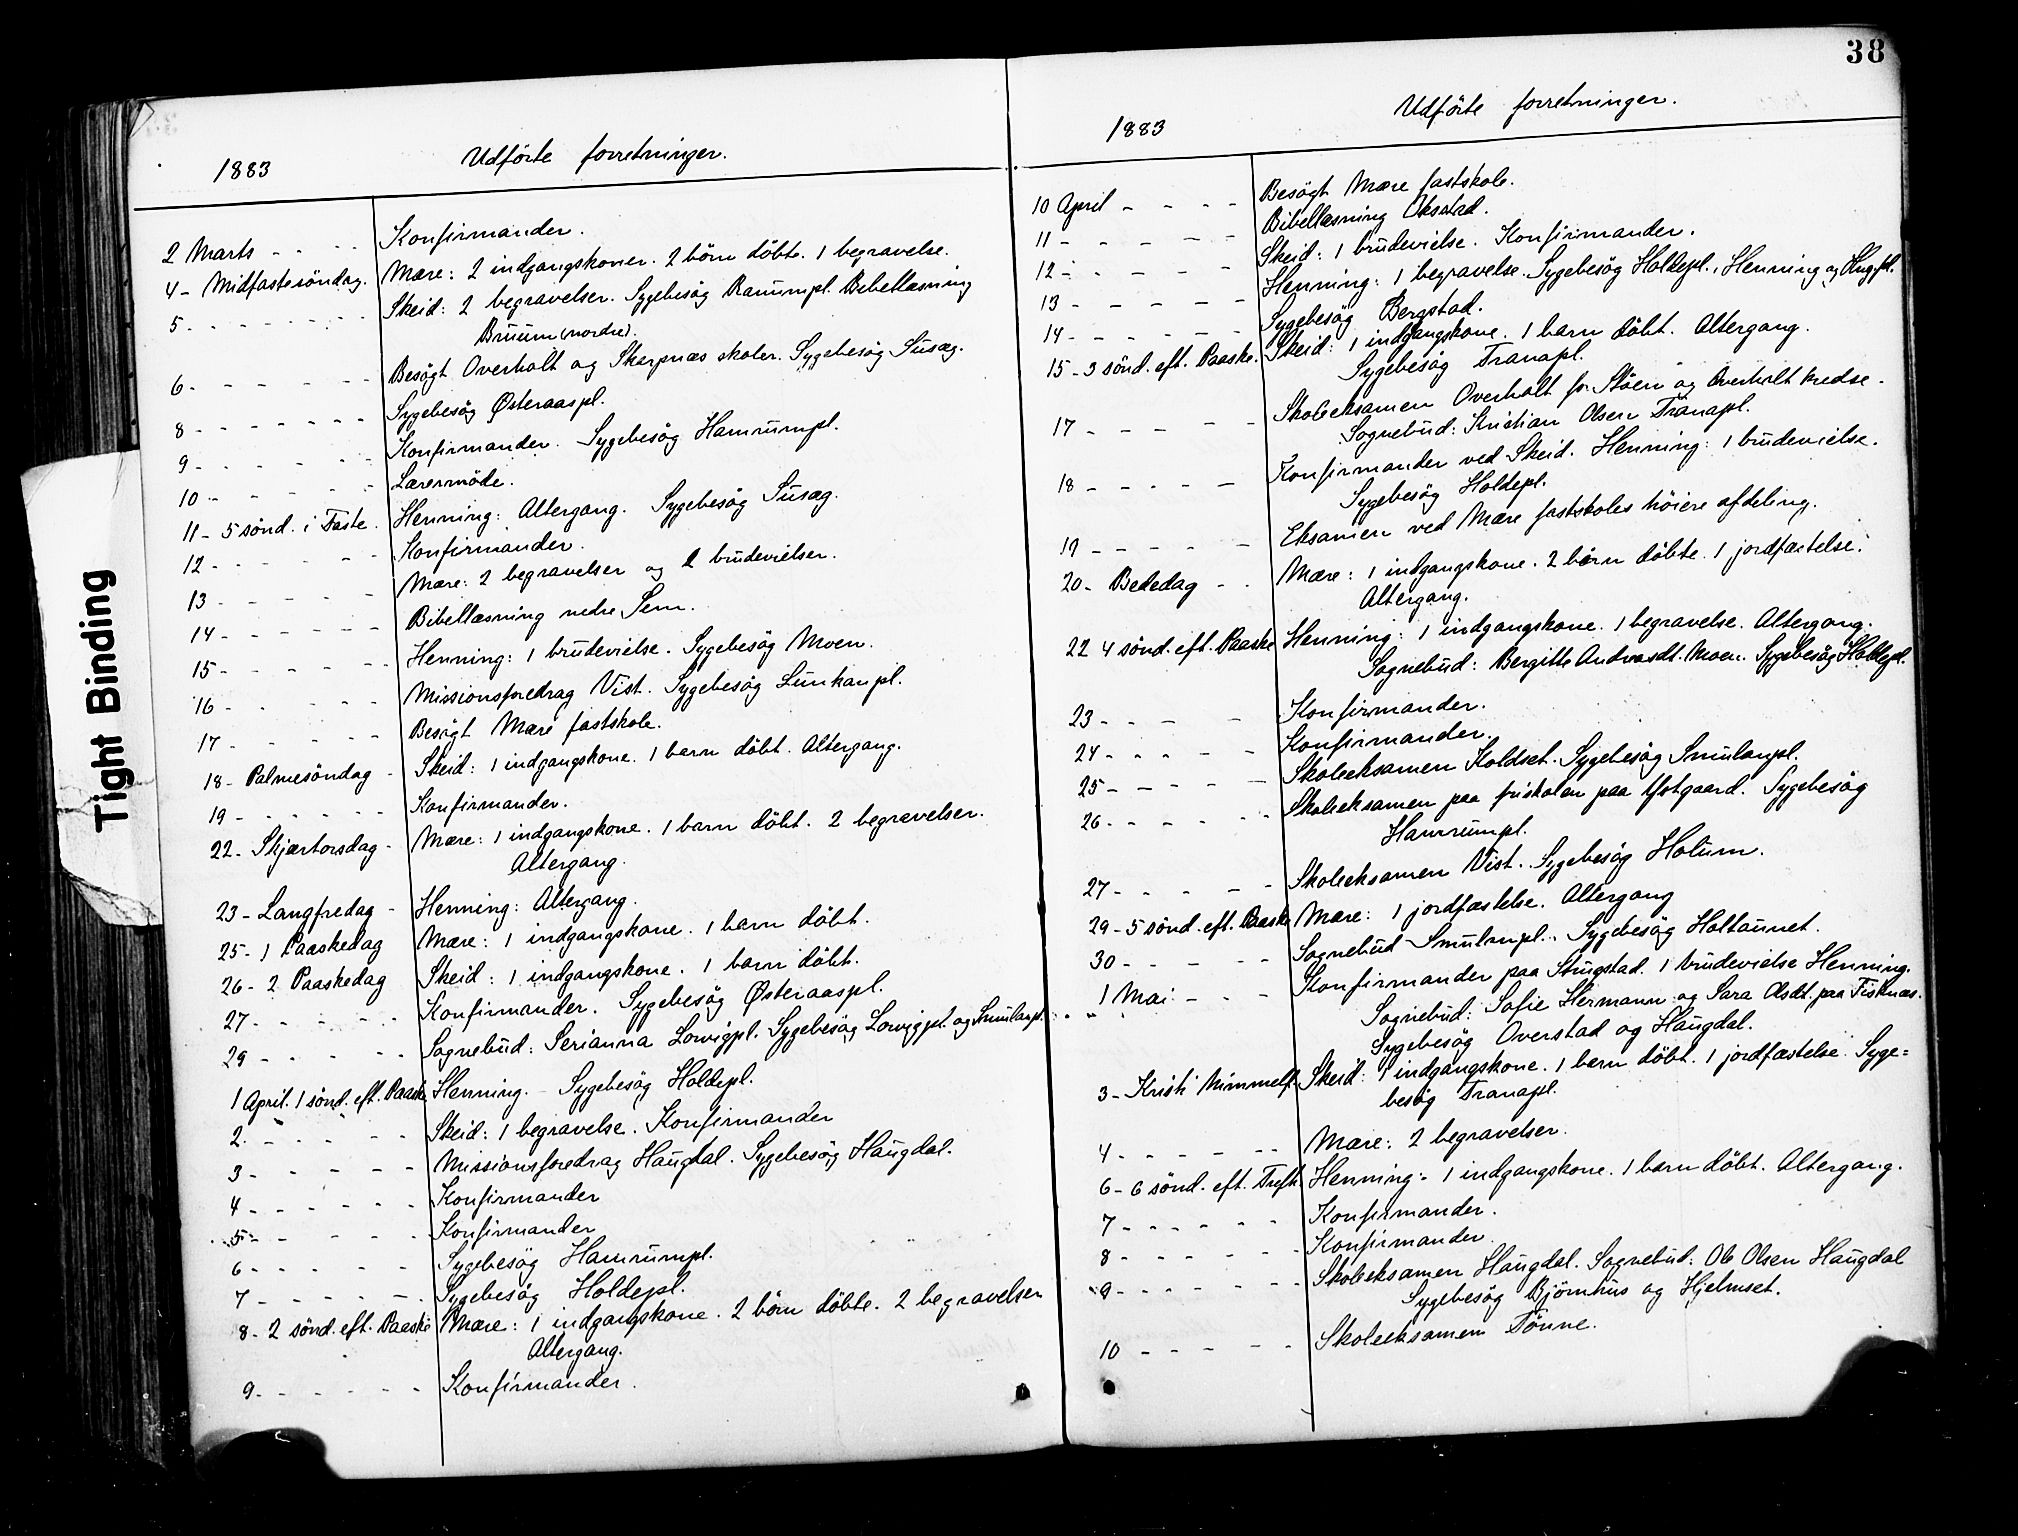 Tight Binding
1883 Udförte forretninger.
2 Marts - - - - Konfirmander.
4 - Midfastesöndag. Mære: 2 indgangskoner. 2 börn döbte. 1 begravelse.
5 - - - - - - - Skeid: 2 begravelser. Sygebesög Ranumpl. Bibellæsning
Bruum (nordre).
6 - - - - - - Besögt Overholt og Skarpnæs skoler. Sygebesög Susæg.
8 - - - - - - - Sygebesög Østeraaspl.
9 - - - - - - Konfirmander. Sygebesög Hamrumpl.
10 - - - - - - Lærermöde.
11 - 5 sönd. i Faste. Henning: Altergang. Sygebesög Susæg.
12 - - - - - - Konfirmander.
13 - - - - - Mære: 2 begravelser og 2 brudevielser.
14 - - - - - - Bibellæsning nedre Sem.
15 - - - - - - Henning: 1 brudevielse. Sygebesög Moen.
16 - - - - - Missionsforedrag Vist. Sygebesög Lunkanpl.
17 - - - - - Besögt Mære fastskole.
18 - Palmesöndag - Skeid: 1 indgangskone. 1 barn döbt. Altergang.
19 - - - - - - Konfirmander.
22 - Skjærtorsdag - Mære: 1 indgangskone. 1 barn döbt. 2 begravelser.
Altergang.
23 - Langfredag - Henning: Altergang.
25 - 1 Paaskedag Mære: 1 indgangskone. 1 barn döbt.
26 - 2 Paaskedag Skeid: 1 indgangskone. 1 barn döbt.
27 - - - - - - Konfirmander. Sygebesög Østeraaspl.
29 - - - - - Sognebud: Serianna Lorvigpl. Sygebesög Lorvigpl. og Smulanpl.
1 April. 1 sönd. eft. Paaske Henning. - Sygebesög Holdepl.
2. - - - - - Skeid: 1 begravelse. Konfirmander
3 - - - - - Missionsforedrag Haugdal. Sygebesög Haugdal.
4 - - - - - - Konfirmander
5 - - - - - Konfirmander
6 - - - - - Sygebesög Hamrumpl.
7 - - - - - - Sygebesög Holdepl.
8 - 2 sönd. eft. Paaske Mære: 1 indgangskone. 2 börn döbte. 2 begravelser
Altergang.
9 - - - - - - Konfirmander.
38
1883 Udförte forretninger.
10 April - - - - Besögt Mære fastskole.
11 - - - - - Bibellæsning Oksstad.
12 - - - - - Skeid: 1 brudevielse. Konfirmander.
13 - - - - - Henning: 1 begravelse. Sygebesög Holdepl., Henning og
14 - - - - - Sygebesög Bergstad.
15 - 3 sönd. eft. Paaske. Skeid: 1 indgangskone. 1 barn döbt. Altergang.
Sygebesög Tranapl.
17 - - - - - Skoleeksamen Overholt for Stöen og Overholt kredse.
Sognebud: Kristian Olsen Tranapl.
18 - - - - - Konfirmander ved Skeid. Henning: 1 brudevielse.
Sygebesög Holdepl.
19 - - - - - Eksamen ved Mære fastskoles höiere afdeling.
20 - Bededag - - Mære: 1 indgangskone. 2 börn döbte. 1 jordfæstelse.
Altergang.
22 4 sönd. eft. Paaske Henning: 1 indgangskone. 1 begravelse. Altergang.
Sognebud: Bergitte Andreasdt. Moen. Sygebesög Holdepl.
23 - - - - Konfirmander.
24 - - - - - Konfirmander.
25 - - - - - Skoleeksamen Koldset. Sygebesög Smulanpl.
26 - - - - - - Skoleeksamen paa friskolen paa Ystgaard. Sygebesög
Hamrumpl.
27 - - - - - Skoleeksamen Vist. Sygebesög Holum.
29 - 5 sönd. eft. Paaske Mære: 1 jordfæstelse. Altergang
30 - - - - - Sognebud Smulanpl. Sygebesög Holtaunet.
1 Mai - - - Konfirmander paa Strugstad. 1 brudevielse Henning.
" Sognebud: Sofie Hermann og Sara Olsdt. paa Fisknæs.
Sygebesög Overstad og Haugdal.
3 - Kristi himmelf. Skeid: 1 indgangskone. 1 barn döbt. 1 jordfæstelse. Syge=
besög Tranapl.
4 - - - - - - Mære: 2 begravelser.
6 - 6 sönd. eft. Henning: 1 indgangskone. 1 barn döbt. Altergang.
7 - - - - - - Konfirmander.
8 - - - - - - Konfirmander.
9 - - - - - - Skoleeksamen Haugdal. Sognebud: Ole Olsen Haugdal
Sygebesög Bjørnhus og Hjelmset.
10 - - - - - - Skoleeksamen Tönne.